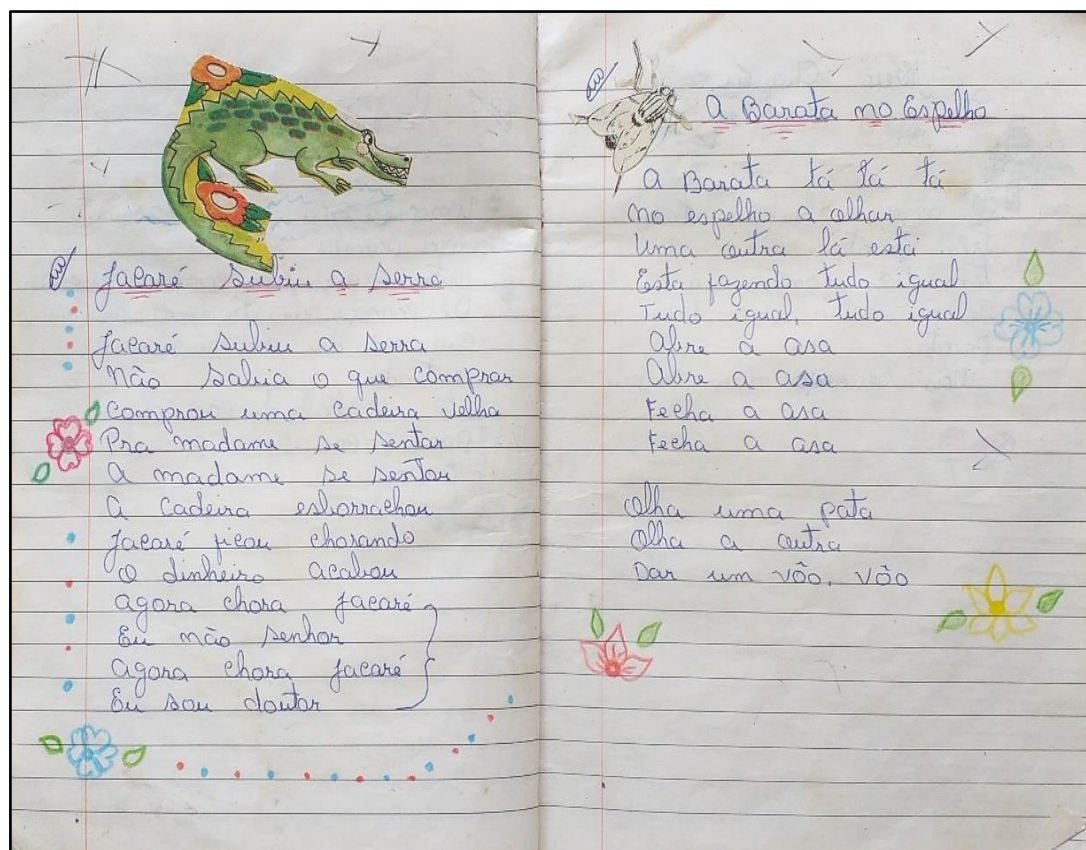 Jacaré subiu a serra
Jacaré subiu a serra
Não sabia o que comprar
Comprou uma cadeira velha
Pra madame se sentar
A madame se sentou
A cadeira esborrachou
Jacaré ficou chorando
O dinheiro acabou
Agora chora Jacaré
Eu não senhor
Agora chora Jacaré
Eu sou doutor
A Barata no Espelho
A Barata tá tá tá
No espelho a olhar
Uma outra lá está
Esta fazendo tudo igual
Tudo igual, tudo igual
Abre a asa
Abre a asa
Fecha a asa
Fecha a asa
Olha uma pata
Olha a outra
Dar um vôo, vôo